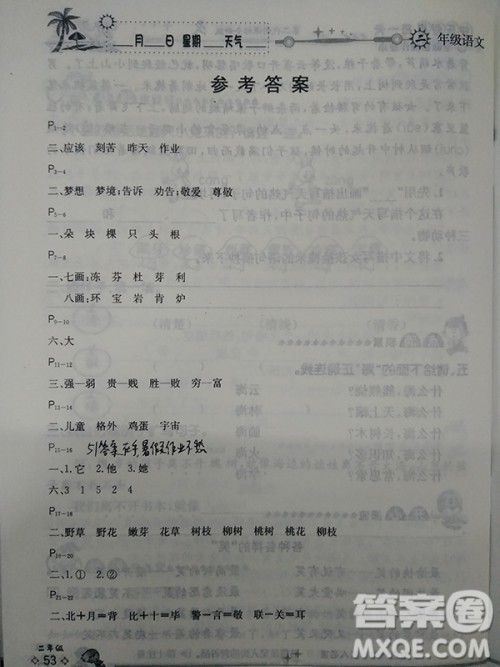 月 日 星期 天气
二 年级语文
参考答案
P1-2
二、应该 刻苦 昨天 作业
P3-4
二、梦想 梦境；告诉 劝告；敬爱 尊敬
P5-6
一、朵 块 棵 只 头 根
P7-8
一、七画：冻 芬 杜 芽 利
八画：环 宝 岩 肯 炉
P9-10
六、大
P11-12
三、强—弱 贵—贱 胜—败 穷—富
P13-14
二、儿童 格外 鸡蛋 宇宙
P15-16
一、1.它 2.他 3.她
六、3 1 5 2 4
P17-18
二、野草 野花 嫩芽 花草 树枝 柳树 桃树 桃花 柳枝
P19-20
二、1.① 2.②
P21-22
二、北＋月＝背 比＋十＝毕 警－言＝敬 联－关＝耳
二年级
53
答案圈
MXQE.COM